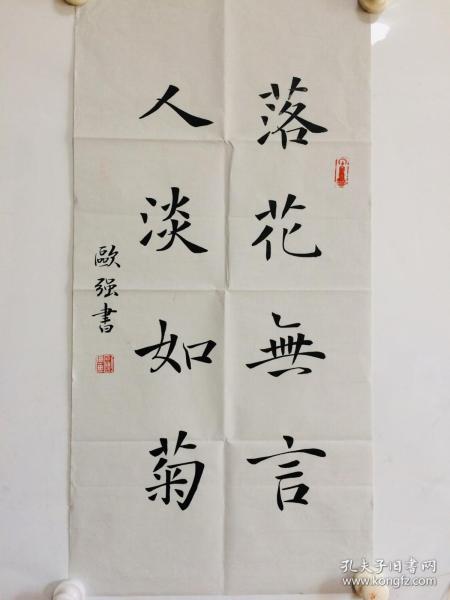 落花無言
人淡如菊
歐强書
孔夫子旧书网
www.kongfz.com